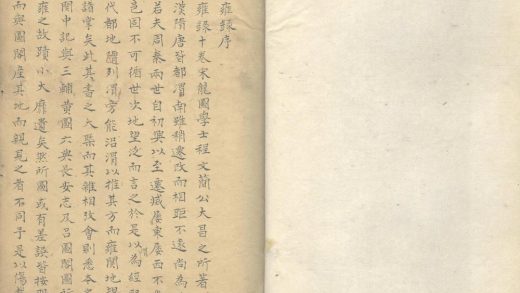 雍錄序
雍錄十卷宋龍圖學士程文簡公大昌之所著
漢隋唐皆都渭南雖稍遷改而相距不遠尚為
若夫周秦兩世自初興以至遷滅屢東屢西不
邑固不可循世次地望泛而言之於是以渭為經
代都地隨列渭旁能沿渭以推其方而雍關地理
諸掌矣此其書之大槩而其雜相攷會則悉本之
關中記與三輔黃圖六典長安志及呂圖閣圖
雍之故蹟小大靡遺矣然所圖或有差誤皆按
而與圖閣產其地而親見之者不同予是以傷